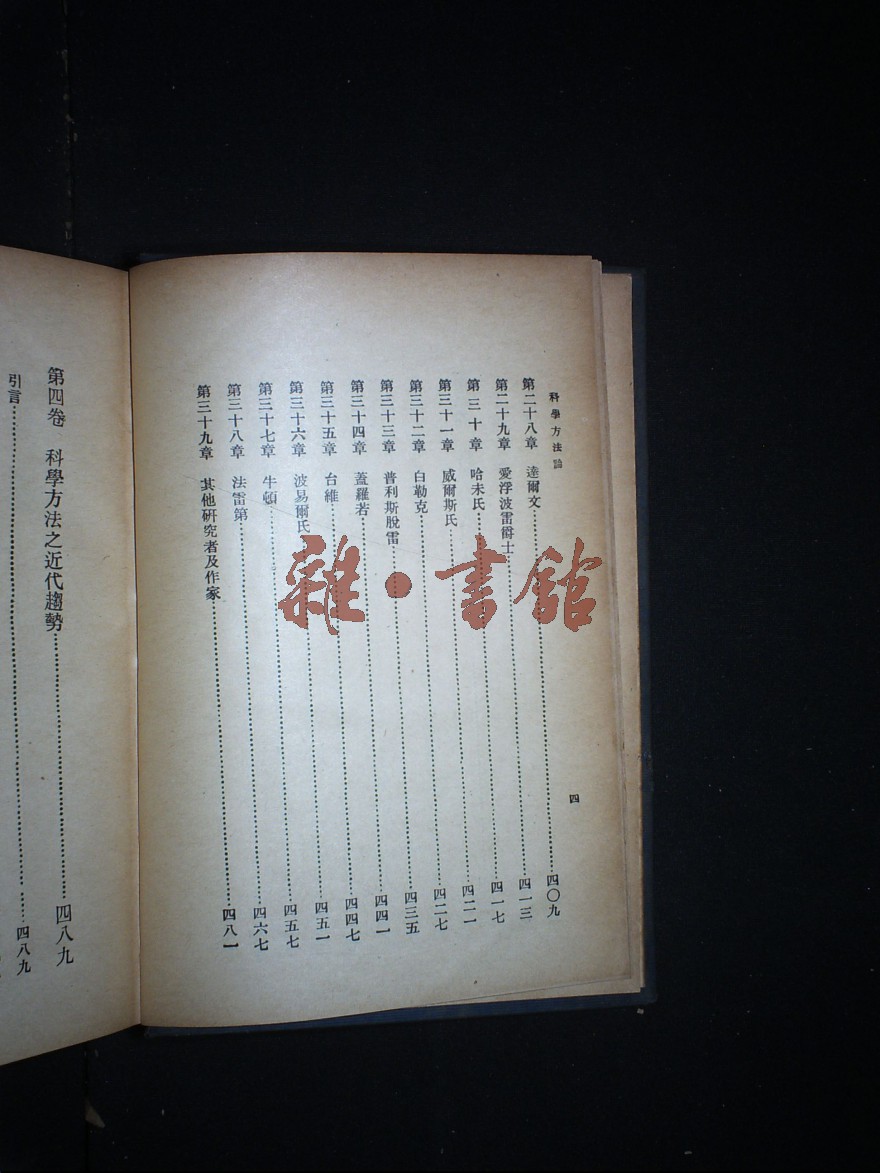 科學方法論
四
第二十八章 達爾文 四〇九
第二十九章 愛浮波雷爵士 四一三
第三十章 哈未氏 四一七
第三十一章 威爾斯氏 四二一
第三十二章 白勒克 四二七
第三十三章 普利斯脫雷 四三五
第三十四章 蓋羅若 四四一
第三十五章 台維 四四七
第三十六章 波易爾氏 四五一
第三十七章 牛頓 四五七
第三十八章 法雷第 四六七
第三十九章 其他研究者及作家 四八一
第四卷 科學方法之近代趨勢 四八九
引言 四八九
雜·書館